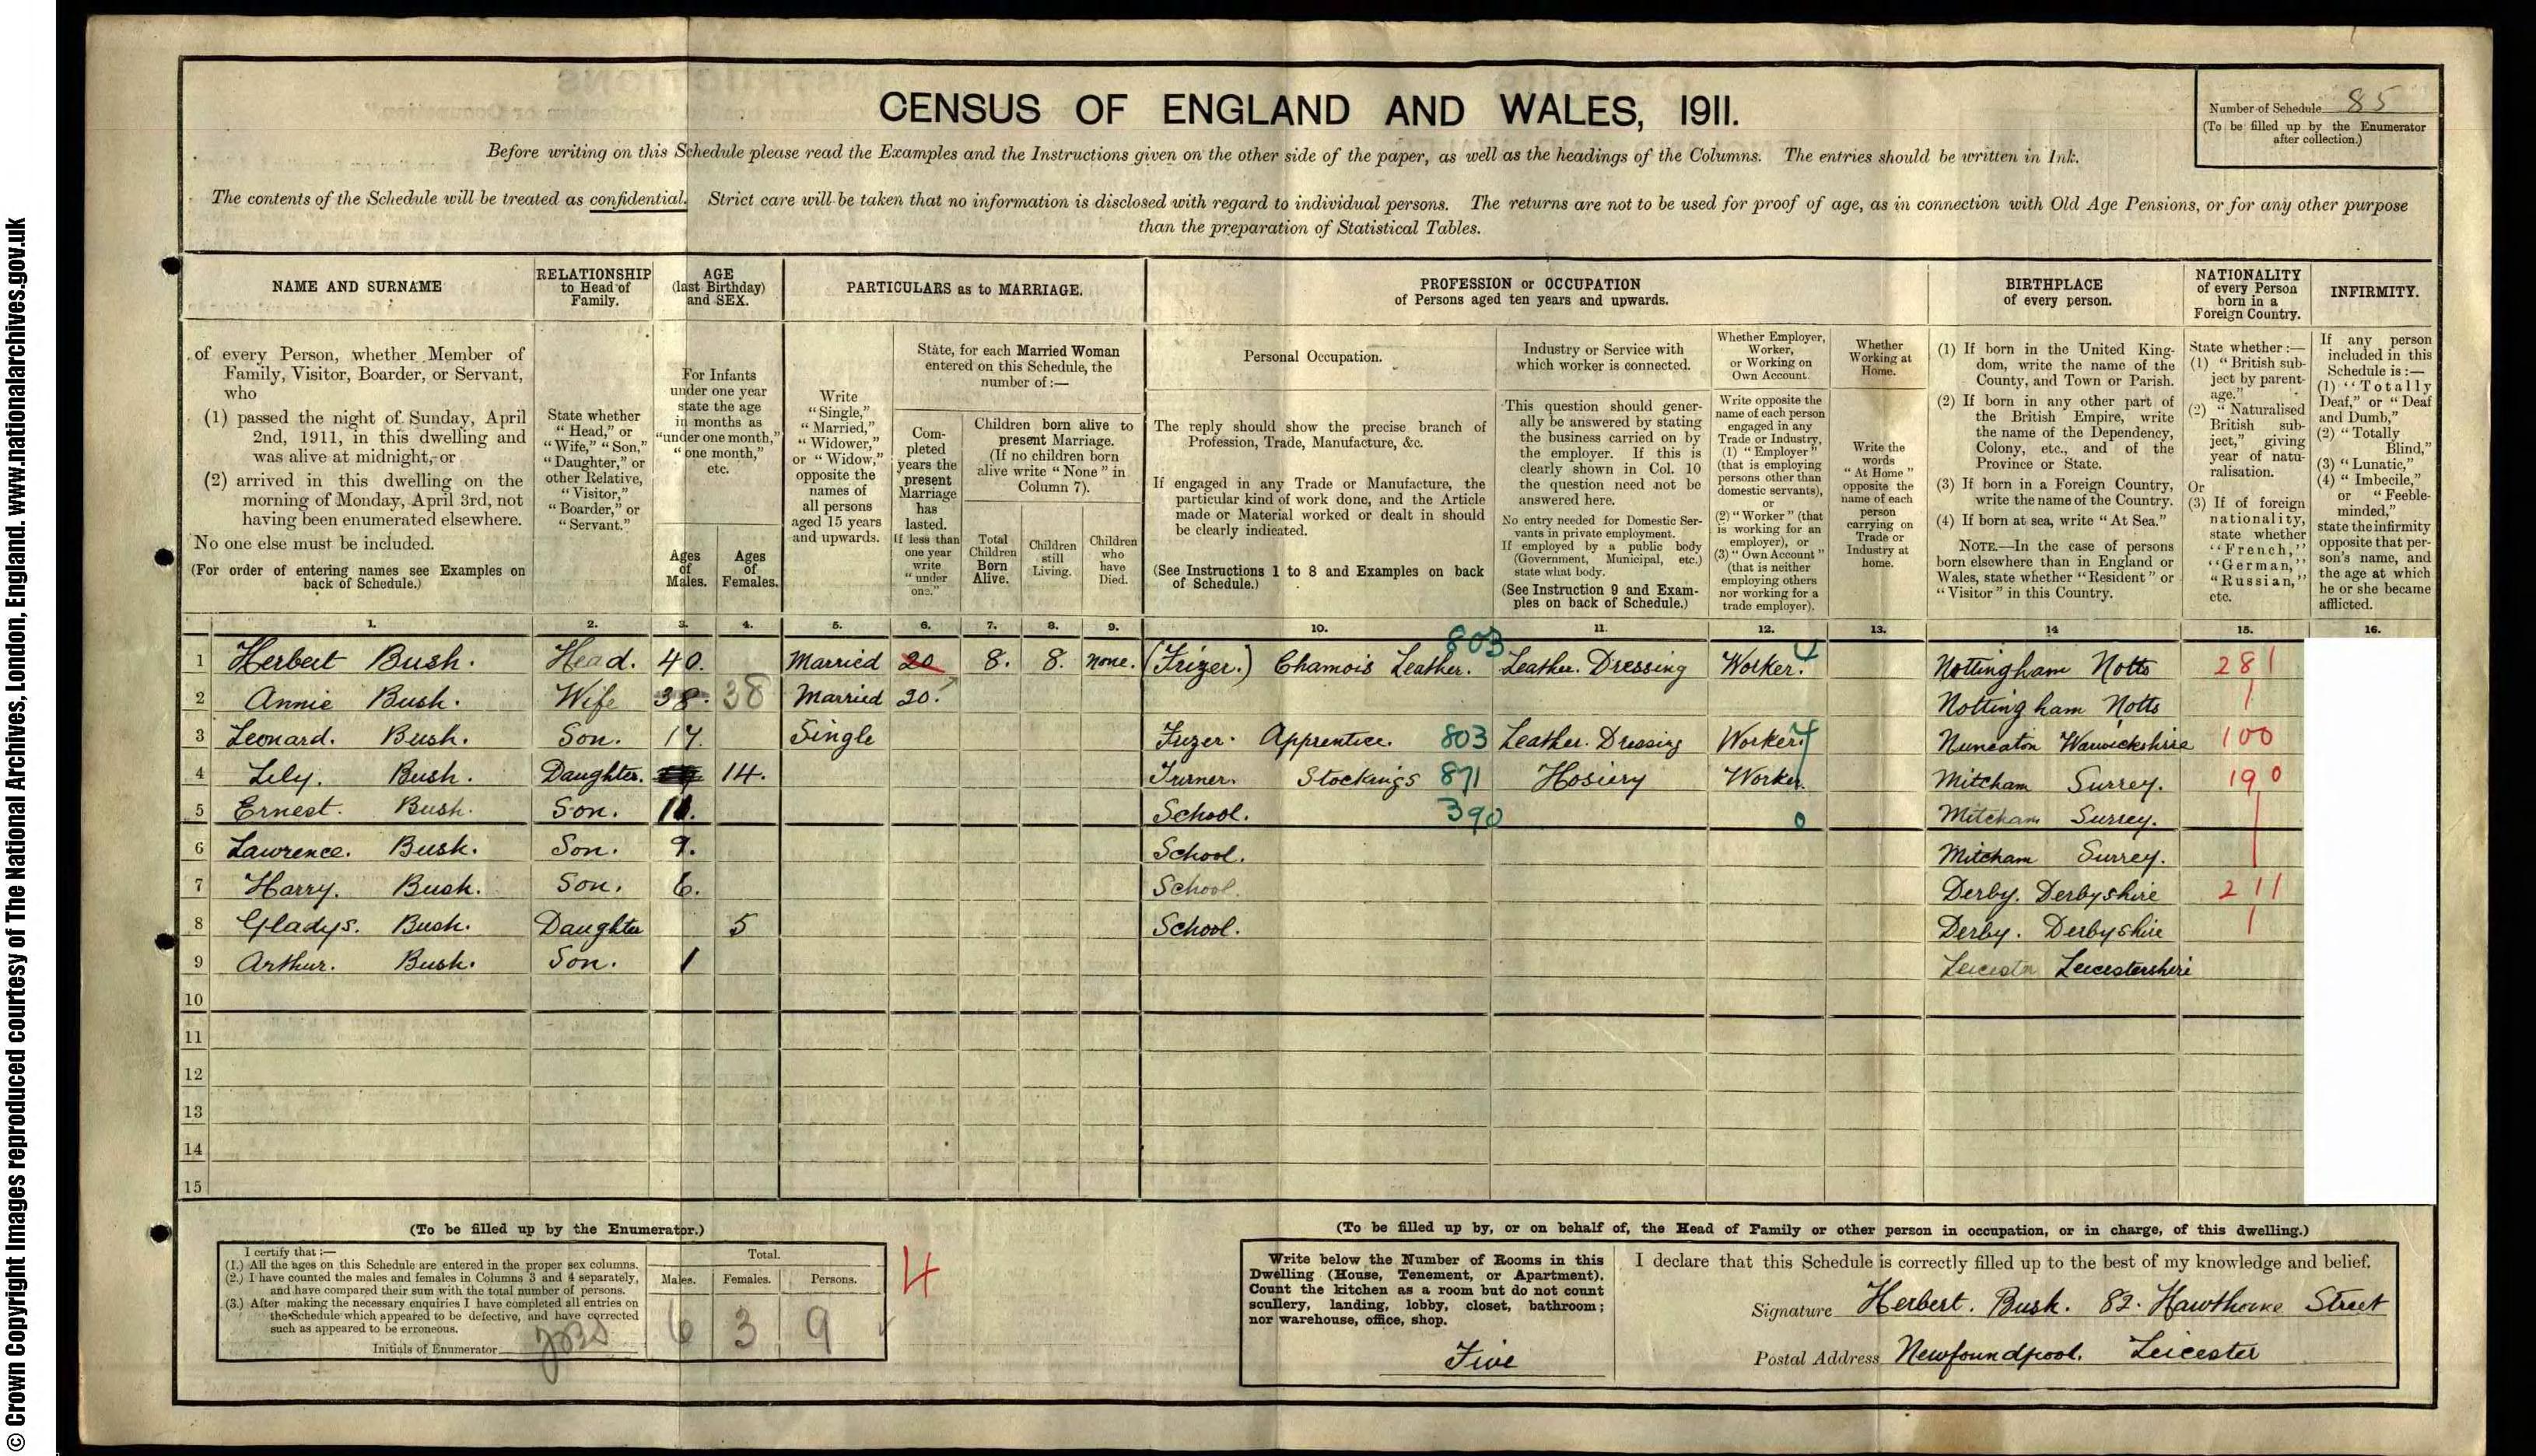 © Crown Copyright Images reproduced courtesy of The National Archives, London, England. www.nationalarchives.gov.uk
CENSUS OF ENGLAND AND WALES, 1911.
Number of Schedule 85
(To be filled up by the Enumerator after collection.)
Before writing on this Schedule please read the Examples and the Instructions given on the other side of the paper, as well as the headings of the Columns. The entries should be written in Ink.
The contents of the Schedule will be treated as confidential. Strict care will be taken that no information is disclosed with regard to individual persons. The returns are not to be used for proof of age, as in connection with Old Age Pensions, or for any other purpose
than the preparation of Statistical Tables.
NAME AND SURNAME
of every Person, whether Member of
Family, Visitor, Boarder, or Servant,
who
(1) passed the night of Sunday, April
2nd, 1911, in this dwelling and
was alive at midnight, or
(2) arrived in this dwelling on the
morning of Monday, April 3rd, not
having been enumerated elsewhere.
No one else must be included.
(For order of entering names see Examples on
back of Schedule.)
RELATIONSHIP
to Head of
Family.
State whether
"Head," or
"Wife," "Son,"
"Daughter," or
other Relative,
"Visitor,"
"Boarder," or
"Servant."
AGE
(last Birthday)
and SEX.
For Infants
under one year
state the age
in months as
"under one month,"
"one month,"
etc.
Ages
of
Males.
Ages
of
Females.
PARTICULARS as to MARRIAGE.
Write
"Single,"
"Married,"
"Widower,"
or "Widow,"
opposite the
names of
all persons
aged 15 years
and upwards.
State, for each Married Woman
entered on this Schedule, the
number of:—
Com-
pleted
years the
present
Marriage
has
lasted.
If less than
one year
write
"under
one."
Children born alive to
present Marriage.
(If no children born
alive write "None" in
Column 7).
Total
Children
Born
Alive.
Children
still
Living.
Children
who
have
Died.
PROFESSION or OCCUPATION
of Persons aged ten years and upwards.
Personal Occupation.
The reply should show the precise branch of
Profession, Trade, Manufacture, &c.
If engaged in any Trade or Manufacture, the
particular kind of work done, and the Article
made or Material worked or dealt in should
be clearly indicated.
(See Instructions 1 to 8 and Examples on back
of Schedule.)
Industry or Service with
which worker is connected.
This question should gener-
ally be answered by stating
the business carried on by
the employer. If this is
clearly shown in Col. 10
the question need not be
answered here.
No entry needed for Domestic Ser-
vants in private employment.
If employed by a public body
(Government, Municipal, etc.)
state what body.
(See Instruction 9 and Exam-
ples on back of Schedule.)
Whether Employer,
Worker,
or Working on
Own Account.
Write opposite the
name of each person
engaged in any
Trade or Industry,
(1) "Employer"
(that is employing
persons other than
domestic servants),
or
(2) "Worker" (that
is working for an
employer), or
(3) "Own Account"
(that is neither
employing others
nor working for a
trade employer).
Whether
Working at
Home.
Write the
words
"At Home"
opposite the
name of each
person
carrying on
Trade or
Industry at
home.
BIRTHPLACE
of every person.
(1) If born in the United King-
dom, write the name of the
County, and Town or Parish.
(2) If born in any other part of
the British Empire, write
the name of the Dependency,
Colony, etc., and of the
Province or State.
(3) If born in a Foreign Country,
write the name of the Country.
(4) If born at sea, write "At Sea."
NOTE.—In the case of persons
born elsewhere than in England or
Wales, state whether "Resident" or
"Visitor" in this Country.
NATIONALITY
of every Person
born in a
Foreign Country.
State whether:—
(1) "British sub-
ject by parent-
age."
(2) "Naturalised
British sub-
ject," giving
year of natu-
ralisation.
Or
(3) If of foreign
nationality,
state whether
"French,"
"German,"
"Russian,"
etc.
INFIRMITY.
If any person
included in this
Schedule is:—
(1) "Totally
Deaf," or "Deaf
and Dumb,"
(2) "Totally
Blind,"
(3) "Lunatic,"
(4) "Imbecile,"
or "Feeble-
minded,"
state the infirmity
opposite that per-
son's name, and
the age at which
he or she became
afflicted.
1. 2. 3. 4. 5. 6. 7. 8. 9. 10. 11. 12. 13. 14 15. 16.
1 Herbert Bush. Head. 40. Married 20 8. 8. none. (Frizer.) Chamois Leather. 803 Leather. Dressing Worker. Nottingham Notts 281
2 Annie Bush. Wife 38. 38 Married 20. Nottingham Notts
3 Leonard. Bush. Son. 17. Single Frizer. Apprentice. 803 Leather. Dressing Worker. Nuneaton Warwickshire 100
4 Lily. Bush. Daughter. 14. Turner. Stockings 871 Hosiery Worker. Mitcham Surrey. 190
5 Ernest. Bush. Son. 11. School. 390 0 Mitcham Surrey.
6 Lawrence. Bush. Son. 9. School. Mitcham Surrey.
7 Harry. Bush. Son. 6. School. Derby. Derbyshire 211
8 Gladys. Bush. Daughter 5 School. Derby. Derbyshire
9 Arthur. Bush. Son. 1 Leicester Leicestershire
10
11
12
13
14
15
(To be filled up by the Enumerator.)
I certify that:—
(1.) All the ages on this Schedule are entered in the proper sex columns.
(2.) I have counted the males and females in Columns 3 and 4 separately,
and have compared their sum with the total number of persons.
(3.) After making the necessary enquiries I have completed all entries on
the Schedule which appeared to be defective, and have corrected
such as appeared to be erroneous.
Initials of Enumerator
Total.
Males. Females. Persons.
6 3 9
4
(To be filled up by, or on behalf of, the Head of Family or other person in occupation, or in charge, of this dwelling.)
Write below the Number of Rooms in this
Dwelling (House, Tenement, or Apartment).
Count the kitchen as a room but do not count
scullery, landing, lobby, closet, bathroom;
nor warehouse, office, shop.
Five
I declare that this Schedule is correctly filled up to the best of my knowledge and belief.
Signature Herbert. Bush. 82. Hawthorne Street
Postal Address Newfoundpool. Leicester